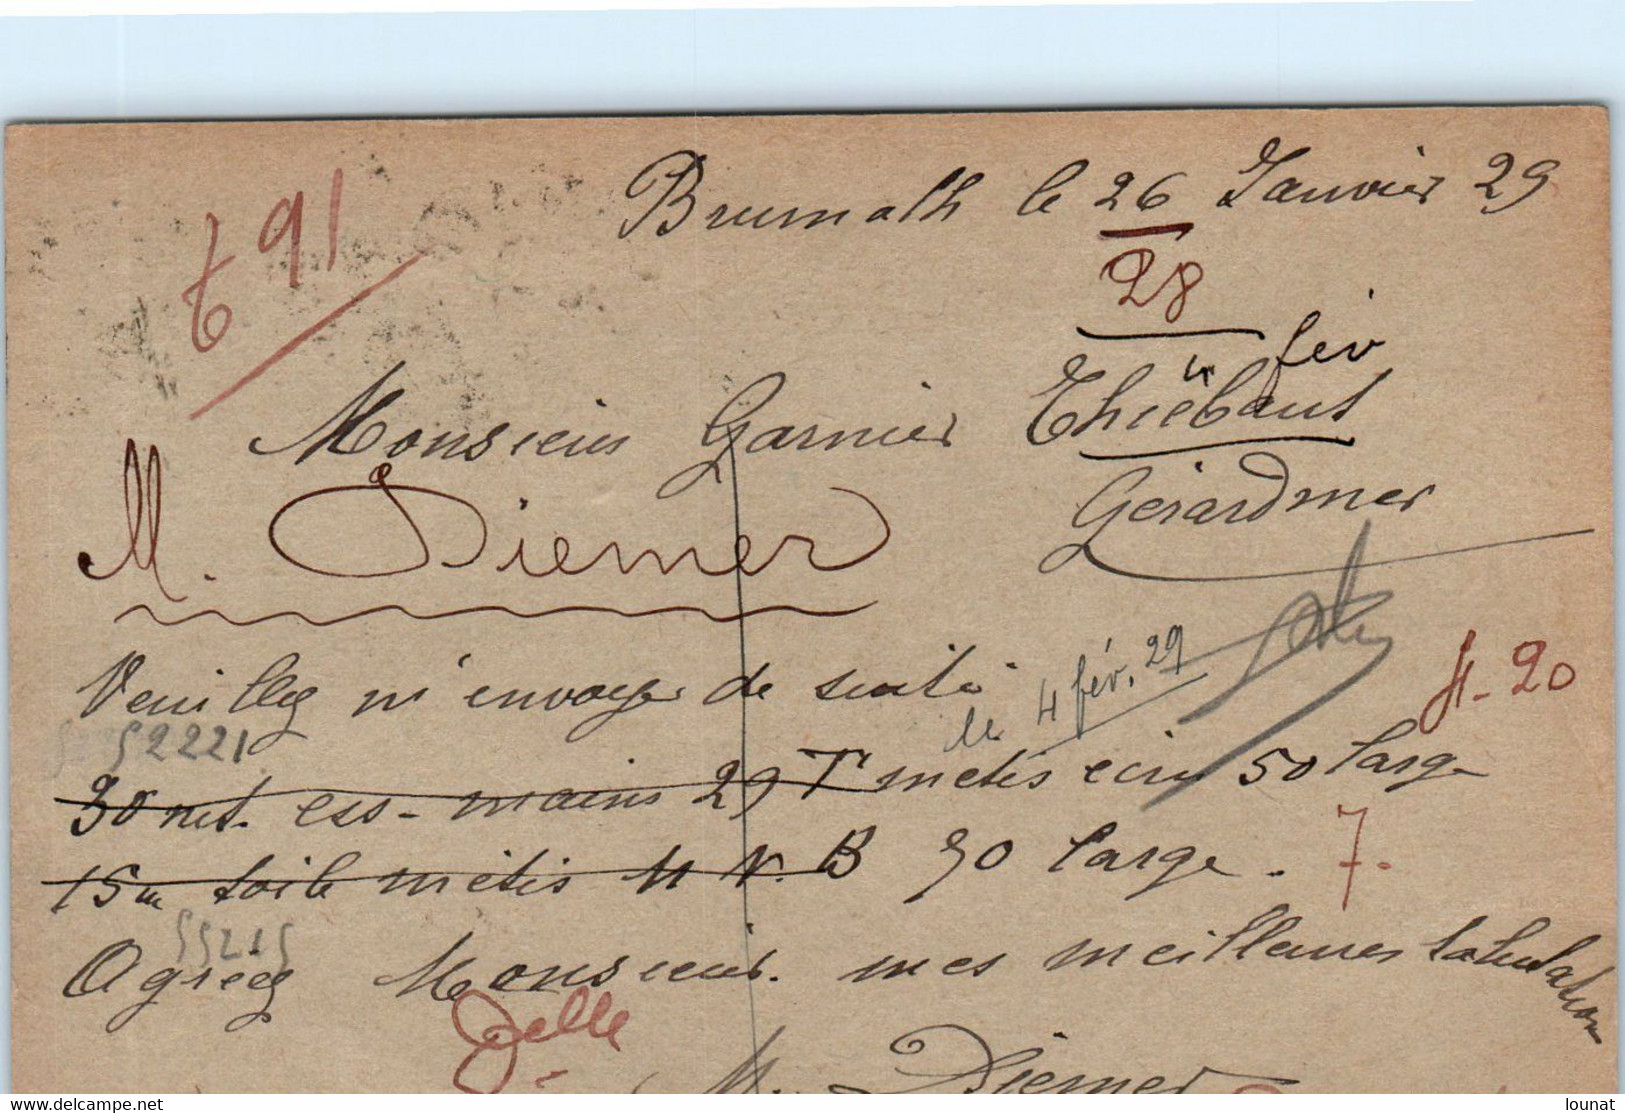 Brumath le 26 Janvier 29
28
t 91
4 fév
Monsieur Garnier Thiébaut
Gérardmer
M. Diemer
Veuillez m'envoyer de suite
le 4 fév. 29
11.20
52221
30 mt. ess-mains 29 T métis écru 50 large
15 m toile métis 11 N.B 90 large. 7.
55215
Agréez Monsieur. mes meilleures salutation
M. Diemer
delcampe.net
lounat